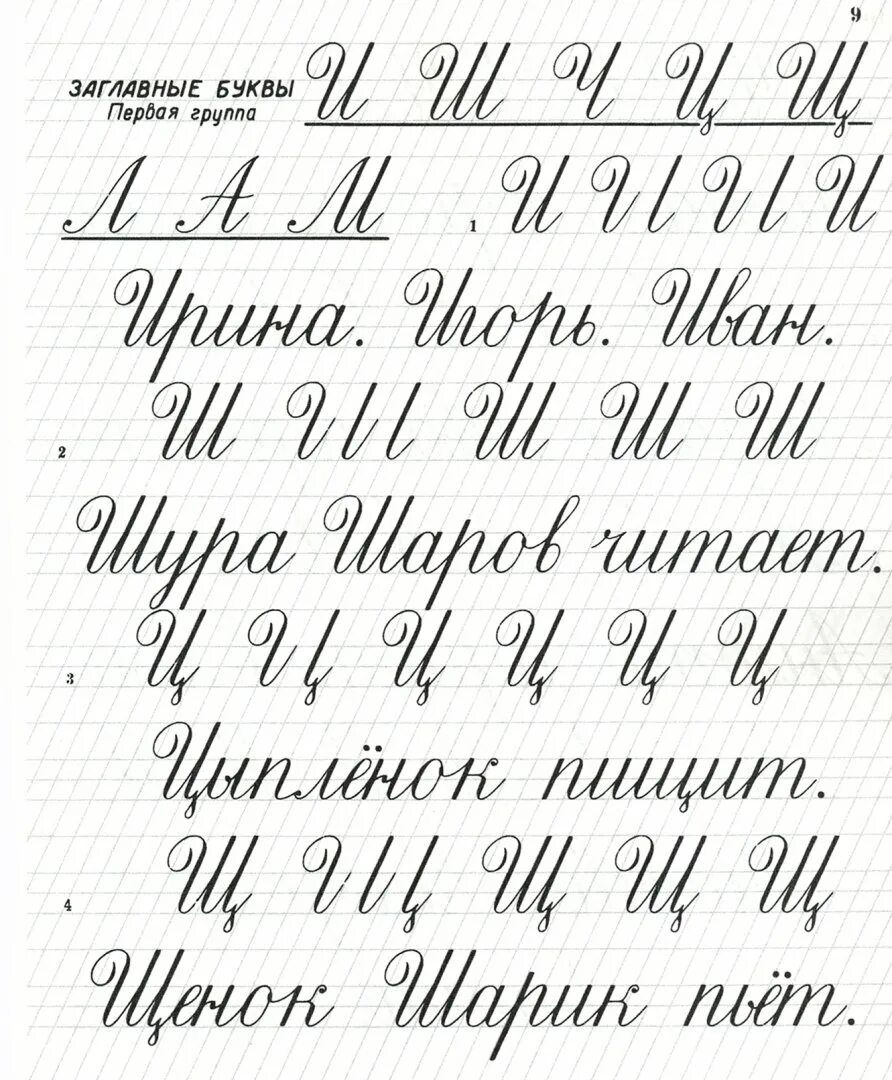 9
ЗАГЛАВНЫЕ БУКВЫ И Ш Ч Ц Щ
Первая группа
Л А М
1 И Ѵ l Ѵ l И
Ирина. Игорь. Иван.
2 Ш Ѵ l l Ш Ш Ш
Шура Шаров читает.
3 Ц Ѵ ɩ Ц Ц Ц Ц
Цыплёнок пищит.
4 Щ Ѵ l ɩ Щ Щ Щ
Щенок Шарик пьёт.